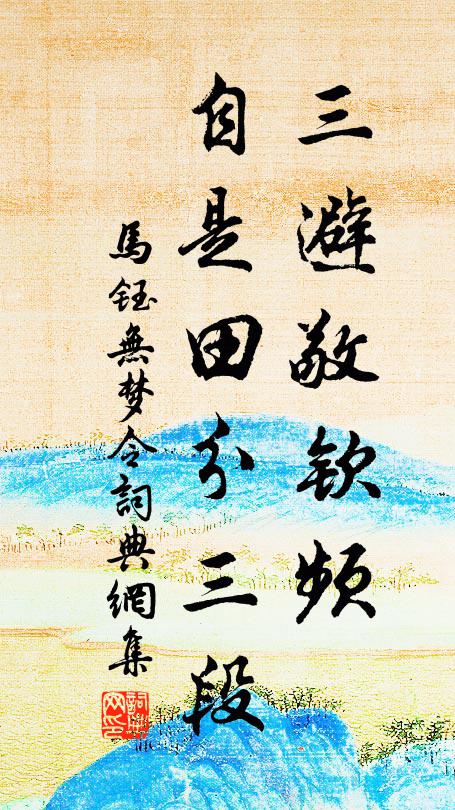 三避敬欽頻
自是田分三段
馬鈺無梦令詞典網集